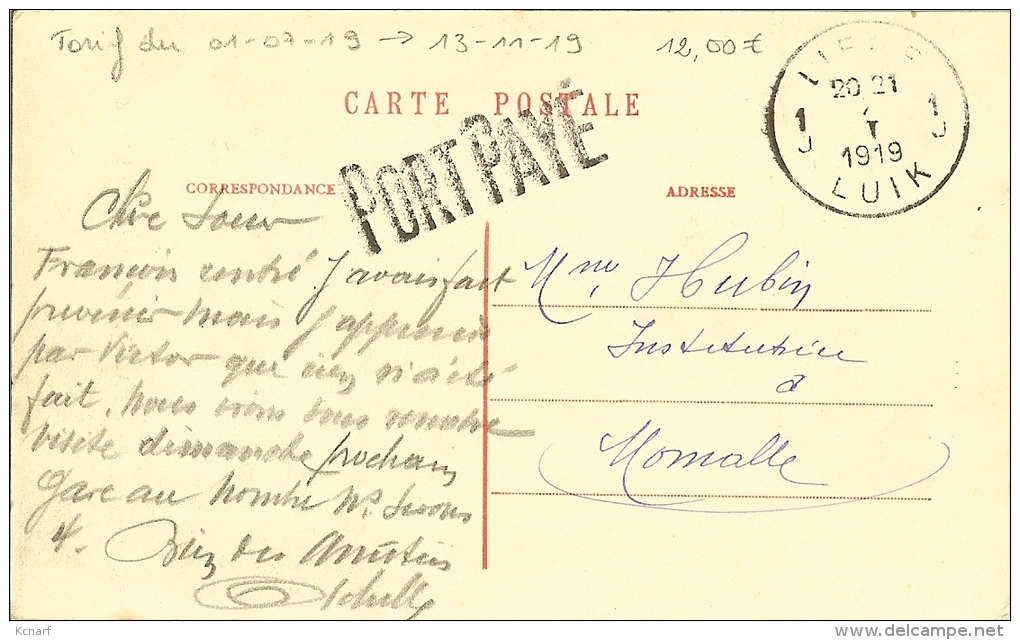 Tarif du 01-07-19 → 13-11-19 12,00€
LIEGE
20 21
1 J
1 J
I
1919
LUIK
CARTE POSTALE
PORT PAYÉ
CORRESPONDANCE
ADRESSE
Chère Soeur
François rentré j'avais fait
prévenir mais j'apprends
par Victor que rien n'a été
fait. Nous irons vous rendre
visite dimanche prochain
Gare au nombre Ns. serons
4. Bien des
Mme Hubin
Institutrice
à
Momalle
Kcnarf
delcampe.net